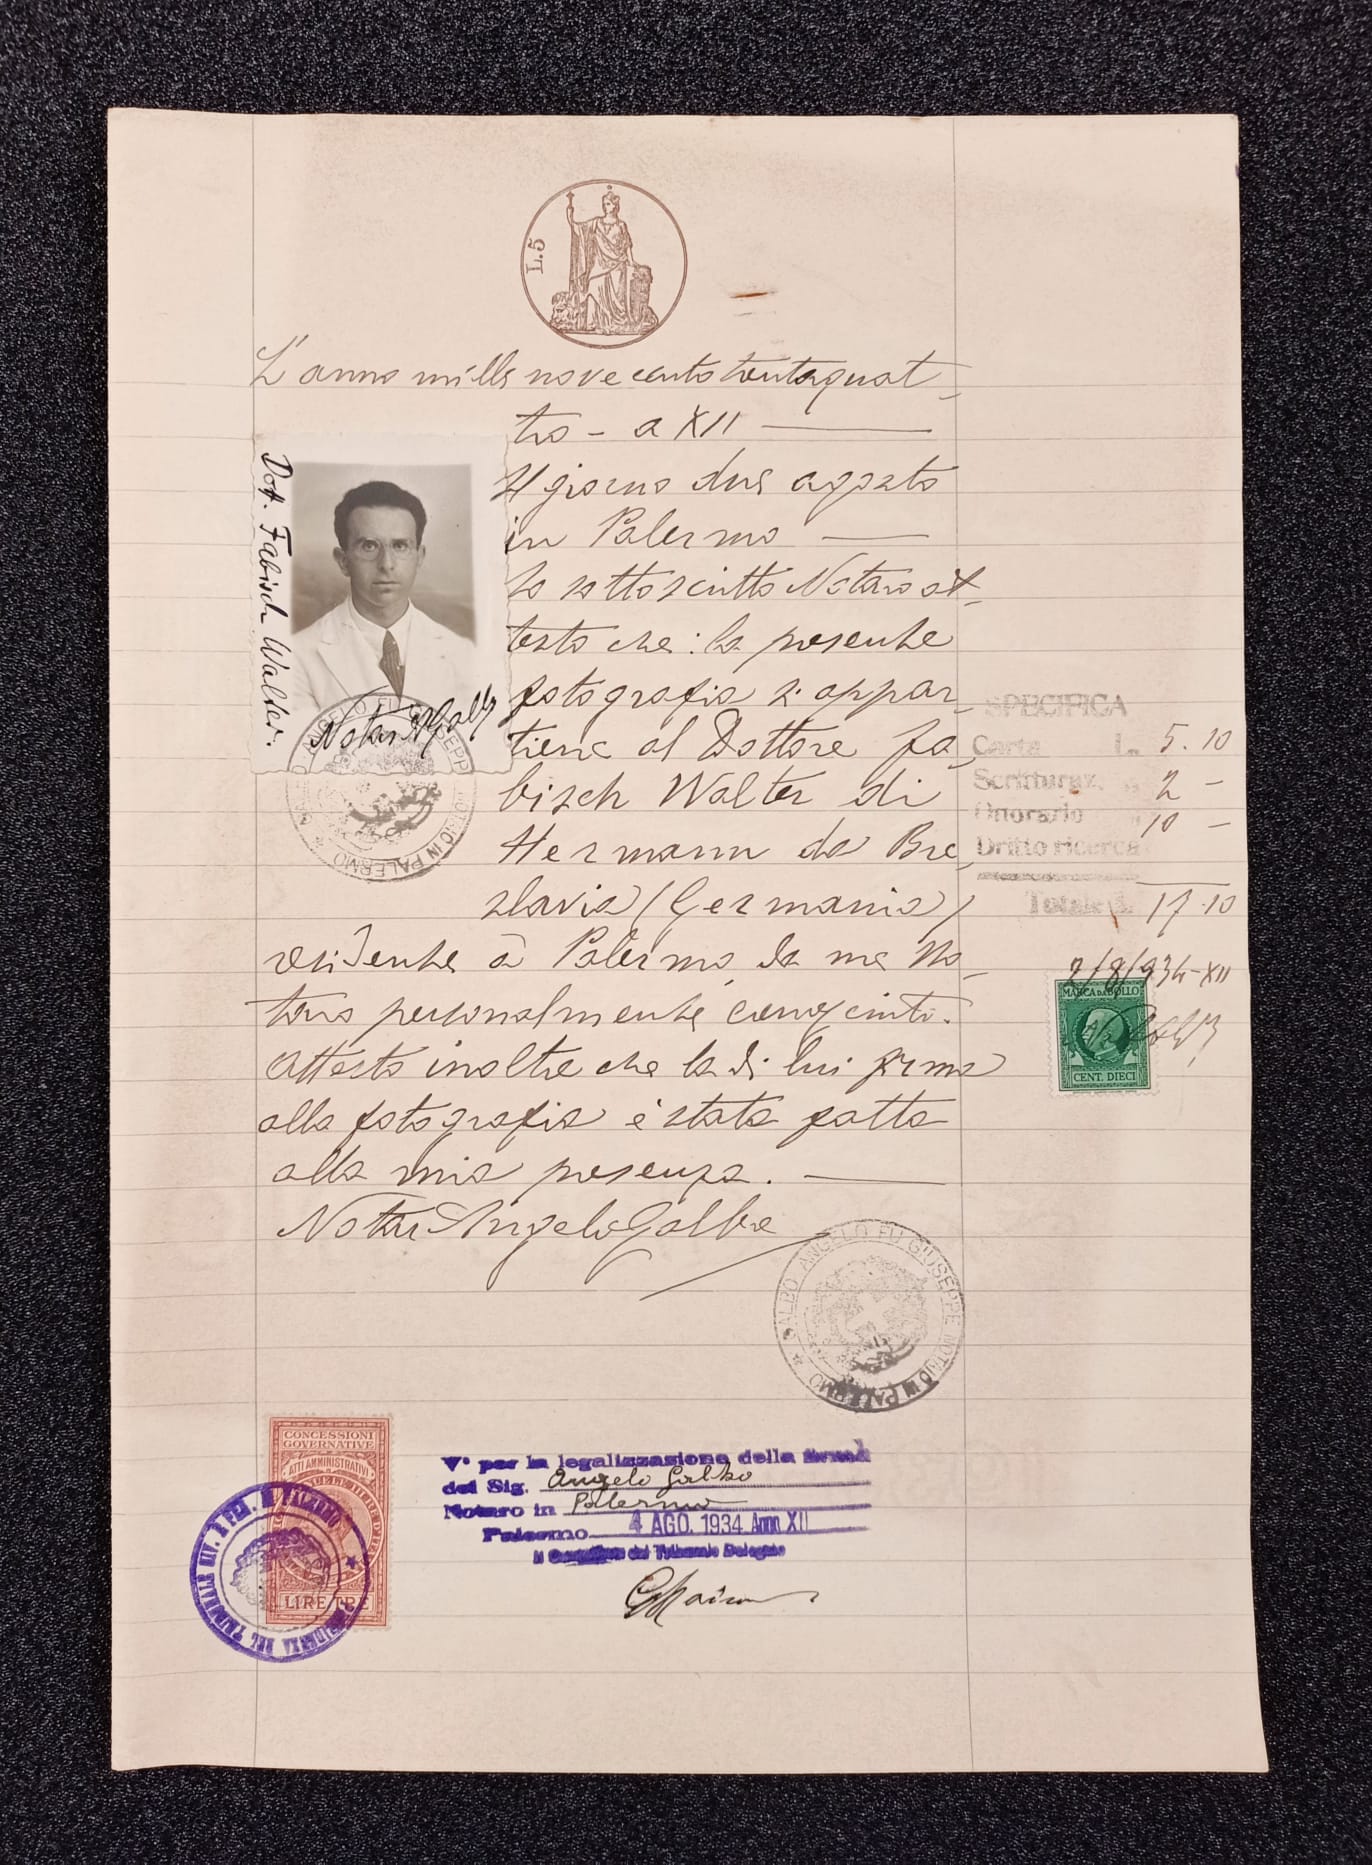 L.5
L'anno mille novecento trentaquat-
tro - a XII
Il giorno due agosto
in Palermo
Io sottoscritto Notaro at-
testo che: la presente
fotografia s'appar-
tiene al Dottore Fa-
bisch Walter di
Hermann da Bre-
slavia (Germania)
residente a Palermo, da me No-
taro personalmente conosciuto.
Attesto inoltre che la di lui firma
alla fotografia è stata fatta
alla mia presenza.
Notar Angelo Galbo
Dott. Fabisch Walter.
Notar A Galbo
ANGELO FU GIUSEPPE NOTAIO IN PALERMO
SPECIFICA
Carta L. 5.10
Scritturaz. " 2 -
Onorario " 10 -
Dritto ricerca
Totale L. 17.10
2/8/934-XII
MARCA DA BOLLO
CENT. DIECI
GALBO ANGELO FU GIUSEPPE NOTAIO IN PALERMO
CONCESSIONI
GOVERNATIVE
ATTI AMMINISTRATIVI
LIRE TRE
TRIBUNALE CIV. E PEN. DI PALERMO
V° per la legalizzazione della firma
del Sig. Angelo Galbo
Notaro in Palermo
Palermo 4 AGO. 1934 Anno XII
Il Cancelliere del Tribunale Delegato